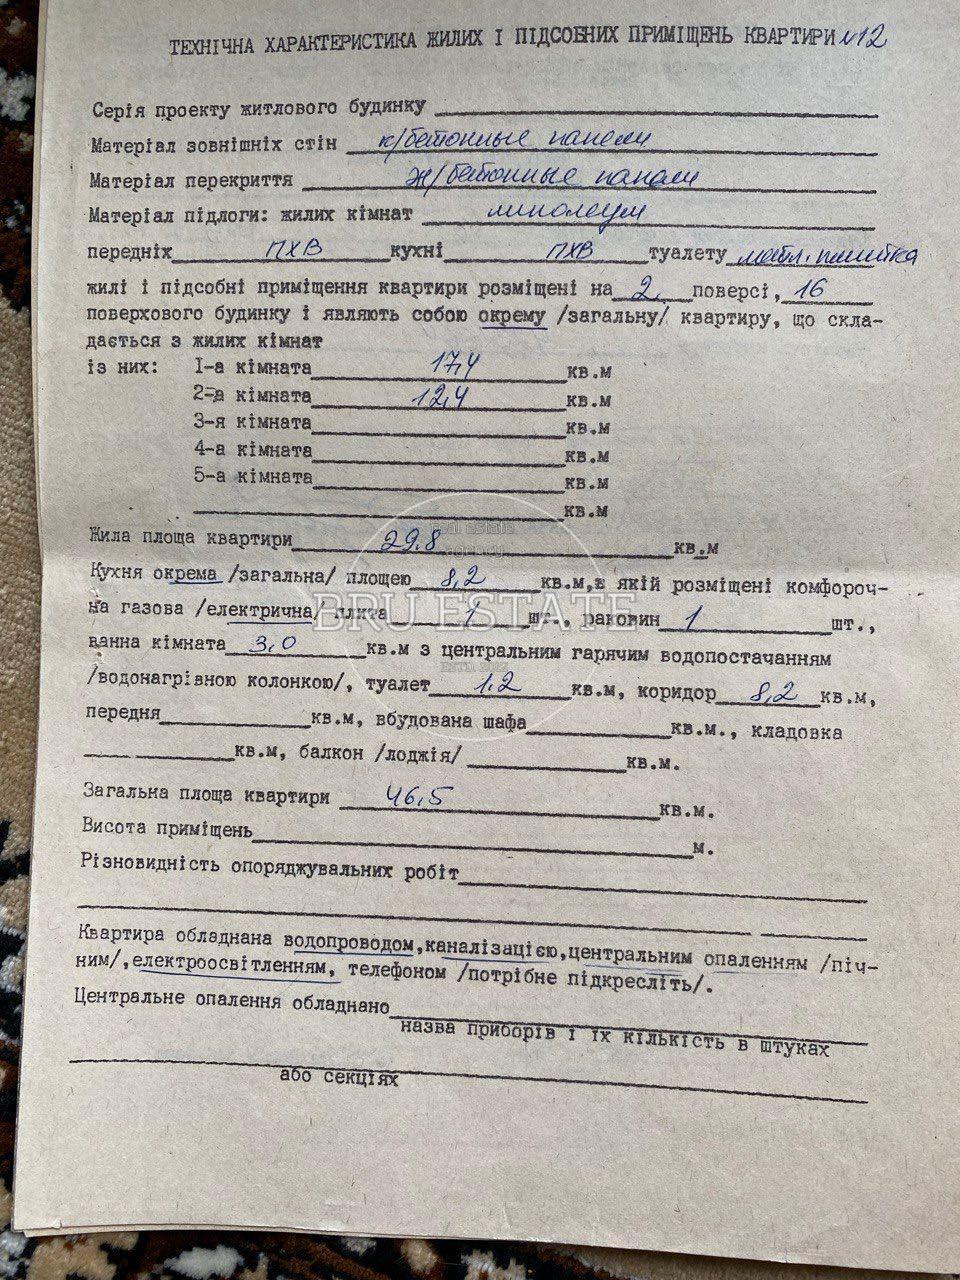 ТЕХНІЧНА ХАРАКТЕРИСТИКА ЖИЛИХ І ПІДСОБНИХ ПРИМІЩЕНЬ КВАРТИРИ №12
Серія проекту житлового будинку
Матеріал зовнішніх стін к/бетонные панели
Матеріал перекриття ж/бетонные панели
Матеріал підлоги: жилих кімнат линолеум
передніх ПХВ кухні ПХВ туалету плитка
жилі і підсобні приміщення квартири розміщені на 2 поверсі, 16
поверхового будинку і являють собою окрему /загальну/ квартиру, що скла-
дається з жилих кімнат
із них: І-а кімната 17,4 кв.м
2-а кімната 12,4 кв.м
3-я кімната кв.м
4-а кімната кв.м
5-а кімната кв.м
кв.м
real estate
Жила площа квартири 29.8 кв.м
agency
Кухня окрема /загальна/ площею 8,2 кв.м,в якій розміщені комфороч-
BRU ESTATE
на газова /електрична/ плита 1 шт., раковин 1 шт.,
ванна кімната 3,0 кв.м з центральним гарячим водопостачанням
/водонагрівною колонкою/, туалет 1.2 кв.м, коридор 8,2 кв.м,
передня кв.м, вбудована шафа кв.м., кладовка
кв.м, балкон /лоджія/ кв.м.
Загальна площа квартири 46,5 кв.м.
Висота приміщень м.
Різновидність опоряджувальних робіт
Квартира обладнана водопроводом,каналізацією,центральним опаленням /піч-
ним/,електроосвітленням, телефоном /потрібне підкресліть/.
Центральне опалення обладнано
назва приборів і їх кількість в штуках
або секціях